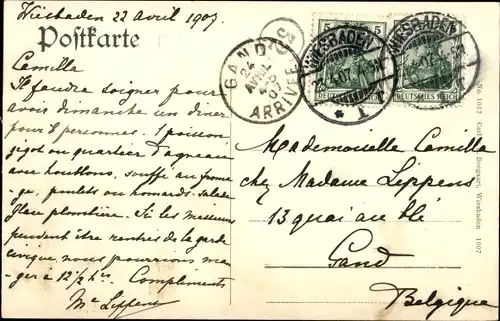 Wiesbaden 22 Avril 1907
Postkarte
Camilla
Il faudra soigner pour
avoir dimanche un diner
pour 8 personnes. 1 poisson
gigot ou quartier d'agneau
avec houblons, soufflé au froma-
ge, poulets ou homards, salade
glace plombière. Si les messieurs
peuvent être rentrés de la garde
civique nous pourrions man-
ger à 12½ hs. Compliments
Me Lippens
GAND
24
AVRIL
07
ARRIVEE
5 5
WIESBADEN
WIESBADEN
DEUTSCHES REICH
DEUTSCHES REICH
* 1 f
Mademoiselle Camilla
chez Madame Lippens
13 quai au blé
Gand
Belgique
No. 1012 Wiesbaden 1907